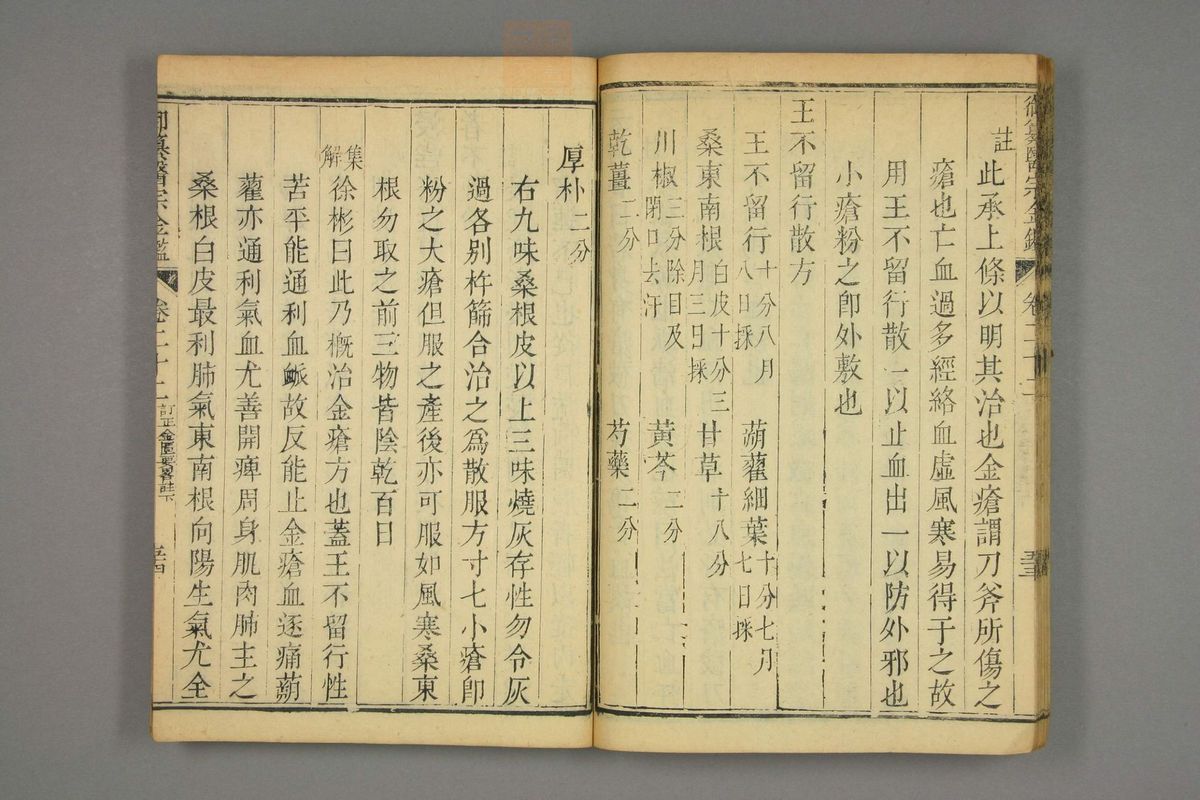 御纂醫宗金鑑 卷二十二 五三
註
此承上條以明其治也金瘡謂刀斧所傷之
瘡也亡血過多經絡血虛風寒易得于之故
用王不留行散一以止血出一以防外邪也
小瘡粉之卽外敷也
王不留行散方
王不留行十分八月八日採 蒴藋細葉十分七月七日採
桑東南根白皮十分三月三日採 甘草十八分
川椒三分除目及閉口去汗 黃芩二分
乾薑二分 芍藥二分
厚朴二分
右九味桑根皮以上三味燒灰存性勿令灰
過各別杵篩合治之爲散服方寸七小瘡卽
粉之大瘡但服之產後亦可服如風寒桑東
根勿取之前三物皆陰乾百日
集解
徐彬曰此乃概治金瘡方也蓋王不留行性
苦平能通利血脈故反能止金瘡血逐痛蒴
藋亦通利氣血尤善開痺周身肌肉肺主之
桑根白皮最利肺氣東南根向陽生氣尤全
御纂醫宗金鑑 卷二十二 訂正金匱要畧註下 五四